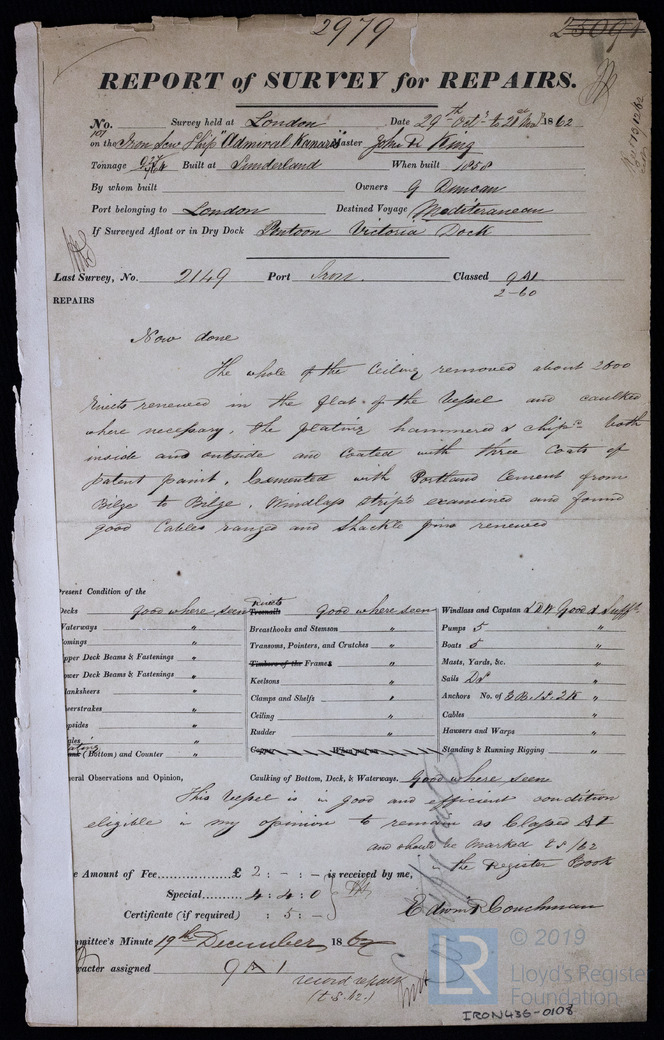 2979
25094
REPORT of SURVEY for REPAIRS.
No. Survey held at London Date 29th Octr to 21st Novr 1862
on the Iron Scw Ship "Admiral Kanaris" Master John R King
Tonnage Built at Sunderland When built 1858
By whom built Owners G Duncan
Port belonging to London Destined Voyage Mediteranean
If Surveyed Afloat or in Dry Dock Pontoon Victoria Dock
Last Survey, No. 2149 Port Iron. Classed 9A1
2-60
REPAIRS
Now done
The whole of the Ceiling removed about 2600
Rivets renewed in the flat of the Vessel and caulked
where necessary, the plating hammered & chipd both
inside and outside and coated with three Coats of
patent paint, Cemented with Portland Cement from
Bilge to Bilge, Windlass stripd examined and found
good Cables ranged and Shackle pins renewed
Present Condition of the
Decks good where seen
Waterways "
Comings "
Upper Deck Beams & Fastenings "
Lower Deck Beams & Fastenings "
Planksheers "
Sheerstrakes "
Topsides "
Wales "
Plating
Plank (Bottom) and Counter "
Rivets
Treenails good where seen
Breasthooks and Stemson "
Transoms, Pointers, and Crutches "
Timbers of the Frames "
Keelsons "
Clamps and Shelfs "
Ceiling "
Rudder "
Windlass and Capstan Good & Sufft
Pumps 5 "
Boats 5 "
Masts, Yards, &c. "
Sails Do "
Anchors No. of 3B. 1S. 2K "
Cables "
Hawsers and Warps "
Standing & Running Rigging "
General Observations and Opinion, Caulking of Bottom, Deck, & Waterways. Good where seen
This Vessel is in good and efficient condition
eligible in my opinion to remain as Classed A1
and should be marked t s /62
in the Register Book
The Amount of Fee............£ 2 : - : - is received by me,
Special............ 4 : 4 : 0
Certificate (if required) : 5 : -
Edwin R Couchman
Committee's Minute 19th December 1862
Character assigned 9A1
record repairs
(t.s.62.)
© 2019
LR
Lloyd's Register
Foundation
IRON436-0108